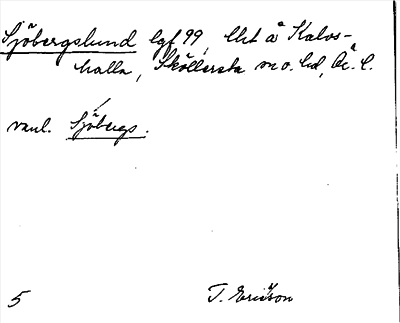 Sjöbergslund lgf 99, lht å Kalvs-
halla, Sköllersta sn o. hd, Ör. l.
vanl. Sjöbergs.
5 T. Ericson